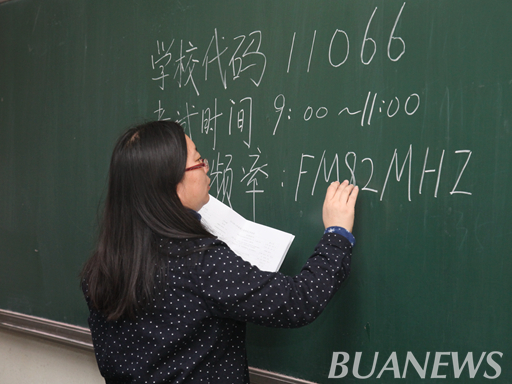 学校代码 11066
考试时间 9:00~11:00
频率:FM82MHZ
BUANEWS